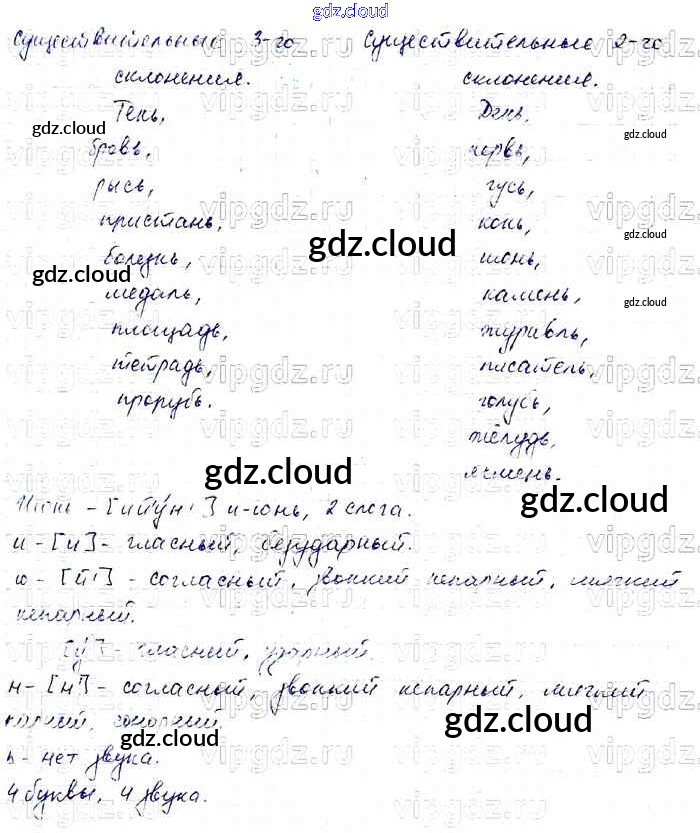 gdz.cloud
Существительные 3-го
склонения.
Тень,
бровь,
рысь,
пристань,
болезнь,
медаль,
площадь,
тетрадь,
прорубь.
Существительные 2-го
склонения.
День,
червь,
гусь,
конь,
июнь,
камень,
журавль,
писатель,
голубь,
жёлудь,
ячмень.
Июнь - [ийу́н'] и-юнь, 2 слога.
и - [и] - гласный, безударный.
ю - [й'] - согласный, звонкий непарный, мягкий
непарный.
[у́] - гласный, ударный.
н - [н'] - согласный, звонкий непарный, мягкий
парный, сонорный.
ь - нет звука.
4 буквы, 4 звука.
gdz.cloud
gdz.cloud
gdz.cloud
gdz.cloud
gdz.cloud
gdz.cloud
gdz.cloud
gdz.cloud
gdz.cloud
gdz.cloud
vipgdz.ru